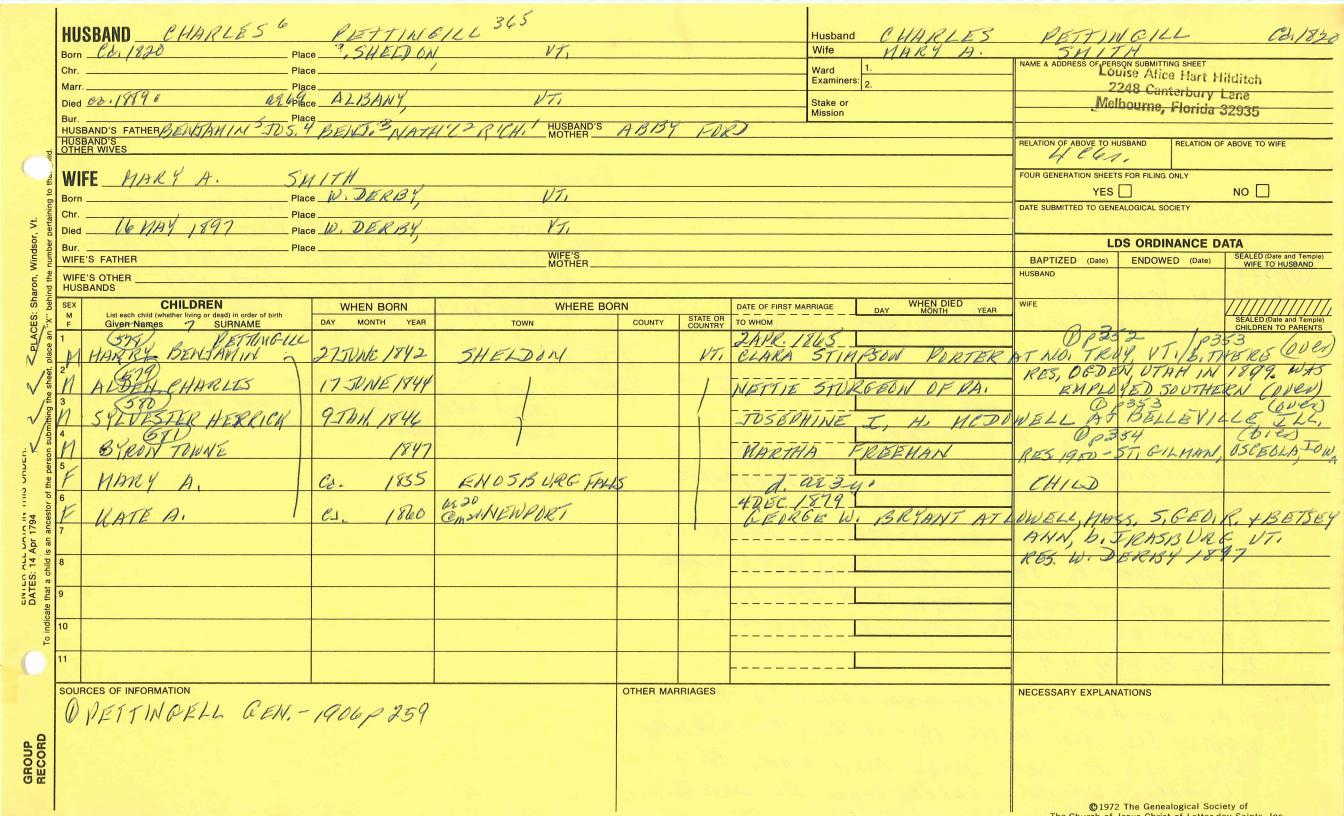 HUSBAND CHARLES 6 PETTINGILL 365
Born Ca. 1820 Place ?, SHELDON, VT.
Chr. Place
Marr. Place
Died ca. 1889 ae 69 Place ALBANY, VT.
Bur. Place
HUSBAND'S FATHER BENJAMIN 5 JOS. 4 BENJ. 3 NATH'L 2 RICH. 1 HUSBAND'S MOTHER ABBY FORD
HUSBAND'S OTHER WIVES
Husband CHARLES PETTINGILL Ca. 1820
Wife MARY A. SMITH
Ward Examiners: 1.
2.
Stake or Mission
NAME & ADDRESS OF PERSON SUBMITTING SHEET
Louise Alice Hart Hilditch
2248 Canterbury Lane
Melbourne, Florida 32935
RELATION OF ABOVE TO HUSBAND RELATION OF ABOVE TO WIFE
FOUR GENERATION SHEETS FOR FILING ONLY
YES NO
DATE SUBMITTED TO GENEALOGICAL SOCIETY
WIFE MARY A. SMITH
Born Place W. DERBY, VT.
Chr. Place
Died 16 MAY 1897 Place W. DERBY, VT.
Bur. Place
WIFE'S FATHER WIFE'S MOTHER
WIFE'S OTHER HUSBANDS
LDS ORDINANCE DATA
BAPTIZED (Date) ENDOWED (Date) SEALED (Date and Temple) WIFE TO HUSBAND
HUSBAND
WIFE
SEALED (Date and Temple) CHILDREN TO PARENTS
SEX M F CHILDREN WHEN BORN WHERE BORN DATE OF FIRST MARRIAGE WHEN DIED
List each child (whether living or dead) in order of birth
Given Names 7 SURNAME DAY MONTH YEAR TOWN COUNTY STATE OR COUNTRY TO WHOM DAY MONTH YEAR
1 578 PETTINGILL 2 APR. 1865 ① p352 / p353
M HARRY BENJAMIN 27 JUNE 1842 SHELDON VT. CLARA STIMPSON PORTER AT NO. TROY, VT., b. THERE (over)
2 579 RES. OGDEN, UTAH IN 1899. WAS
M ALDEN CHARLES 17 JUNE 1844 NETTIE STURGEON OF PA. EMPLOYED SOUTHERN (over)
3 580 ① p353 (over)
M SYLVESTER HERRICK 9 JAN. 1846 JOSEPHINE I. H. MCDOWELL AT BELLEVILLE ILL.
4 581 ① p354 (over)
M BYRON TOWNE 1847 MARTHA FREEMAN RES 1900 - ST. GILMAN, OSCEOLA, IOWA
5
F MARY A. Ca. 1855 ENOSBURG FALLS d. ae 3y. CHILD
6 4 DEC. 1879
F KATE A. Ca. 1860 NEWPORT GEORGE W. BRYANT AT LOWELL, MASS. S. GEO. R. + BETSEY
7 ANN, b. IRASBURG VT.
8 RES. W. DERBY 1897
9
10
11
SOURCES OF INFORMATION
① PETTINGELL GEN. - 1906 p 259
OTHER MARRIAGES
NECESSARY EXPLANATIONS
©1972 The Genealogical Society of
The Church of Jesus Christ of Latter-day Saints, Inc.
ENTER ALL DATA IN THIS ORDER:
PLACES: Sharon, Windsor, Vt.
DATES: 14 Apr 1794
To indicate that a child is an ancestor of the person submitting the sheet, place an "X" behind the number pertaining to that
GROUP RECORD